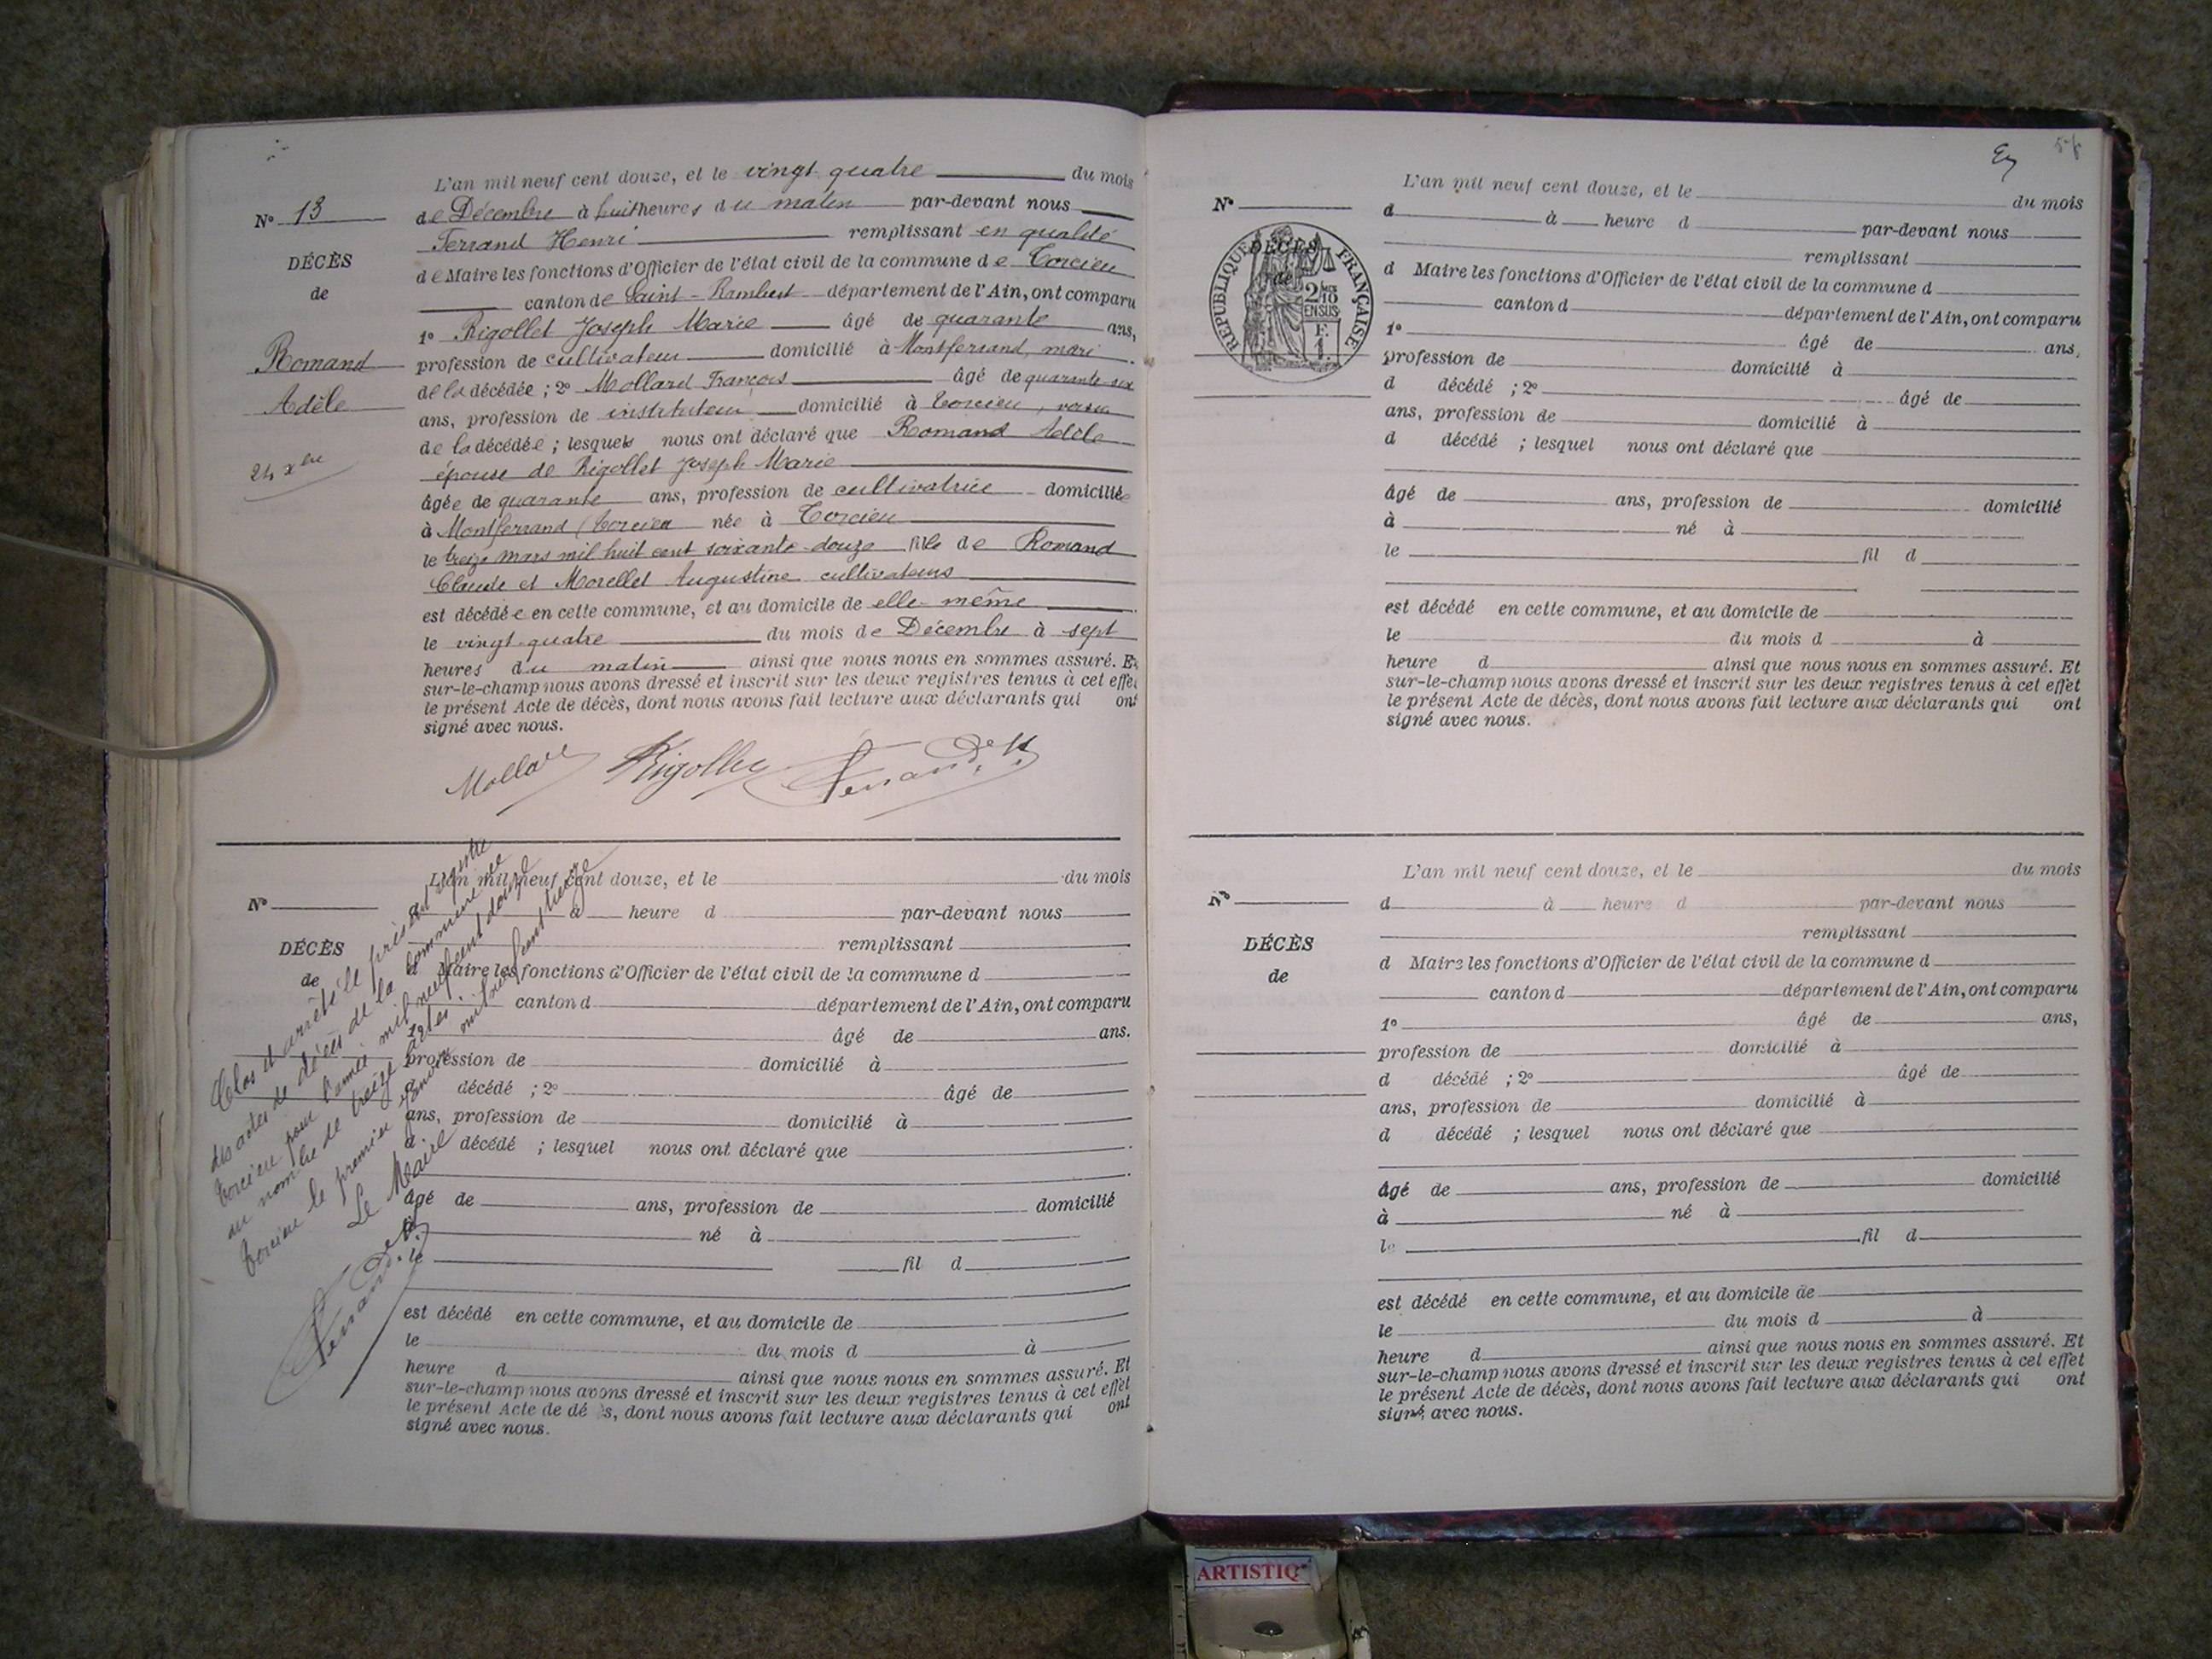 L'an mil neuf cent douze, et le vingt quatre du mois
N° 13
de Décembre à huit heures du matin par-devant nous
Ferrand Henri remplissant en qualité
DÉCÈS
de Maire les fonctions d'Officier de l'état civil de la commune de Torcieu
de
canton de Saint-Rambert département de l'Ain, ont comparu
1° Rigollet Joseph Marie âgé de quarante ans,
Romand
profession de cultivateur domicilié à Montferrand, mari
de la décédée ; 2° Mollard François âgé de quarante six
Adèle
ans, profession de instituteur domicilié à Torcieu, voisin
de la décédée ; lesquels nous ont déclaré que Romand Adèle
24 xbre
épouse de Rigollet Joseph Marie
âgée de quarante ans, profession de cultivatrice domiciliée
à Montferrand (Torcieu née à Torcieu
le treize mars mil huit cent soixante-douze fille de Romand
Claude et Morellet Augustine cultivateurs
est décédée en cette commune, et au domicile de elle-même
le vingt-quatre du mois de Décembre à sept
heures du matin ainsi que nous nous en sommes assuré. Et
sur-le-champ nous avons dressé et inscrit sur les deux registres tenus à cet effet
le présent Acte de décès, dont nous avons fait lecture aux déclarants qui ont
signé avec nous.
Mollard Rigollet Ferrand H.
L'an mil neuf cent douze, et le du mois
N° à heure d par-devant nous
remplissant
DÉCÈS
de
d Maire les fonctions d'Officier de l'état civil de la commune d
canton d département de l'Ain, ont comparu
âgé de ans.
profession de domicilié à
d décédé ; 2° âgé de
ans, profession de domicilié à
d décédé ; lesquel nous ont déclaré que
âgé de ans, profession de domicilié
à né à
le fil d
est décédé en cette commune, et au domicile de
le du mois d à
heure d ainsi que nous nous en sommes assuré. Et
sur-le-champ nous avons dressé et inscrit sur les deux registres tenus à cet effet
le présent Acte de décès, dont nous avons fait lecture aux déclarants qui ont
signé avec nous.
Clos et arrêté le présent registre
des actes de décès de la commune de
Torcieu pour l'année mil neuf cent douze
au nombre de treize actes.
Torcieu le premier Janvier mil neuf cent treize
Le Maire
Ferrand H.
L'an mil neuf cent douze, et le du mois
N°
d à heure d par-devant nous
remplissant
RÉPUBLIQUE FRANÇAISE
2/10
EN SUS
F.
1.
DÉCÈS
de
d Maire les fonctions d'Officier de l'état civil de la commune d
canton d département de l'Ain, ont comparu
1° âgé de ans,
profession de domicilié à
d décédé ; 2° âgé de
ans, profession de domicilié à
d décédé ; lesquel nous ont déclaré que
âgé de ans, profession de domicilié
à né à
le fil d
est décédé en cette commune, et au domicile de
le du mois d à
heure d ainsi que nous nous en sommes assuré. Et
sur-le-champ nous avons dressé et inscrit sur les deux registres tenus à cet effet
le présent Acte de décès, dont nous avons fait lecture aux déclarants qui ont
signé avec nous.
L'an mil neuf cent douze, et le du mois
N°
d à heure d par-devant nous
remplissant
DÉCÈS
de
d Maire les fonctions d'Officier de l'état civil de la commune d
canton d département de l'Ain, ont comparu
1° âgé de ans,
profession de domicilié à
d décédé ; 2° âgé de
ans, profession de domicilié à
d décédé ; lesquel nous ont déclaré que
âgé de ans, profession de domicilié
à né à
le fil d
est décédé en cette commune, et au domicile de
le du mois d à
heure d ainsi que nous nous en sommes assuré. Et
sur-le-champ nous avons dressé et inscrit sur les deux registres tenus à cet effet
le présent Acte de décès, dont nous avons fait lecture aux déclarants qui ont
signé avec nous.
ARTISTIQ